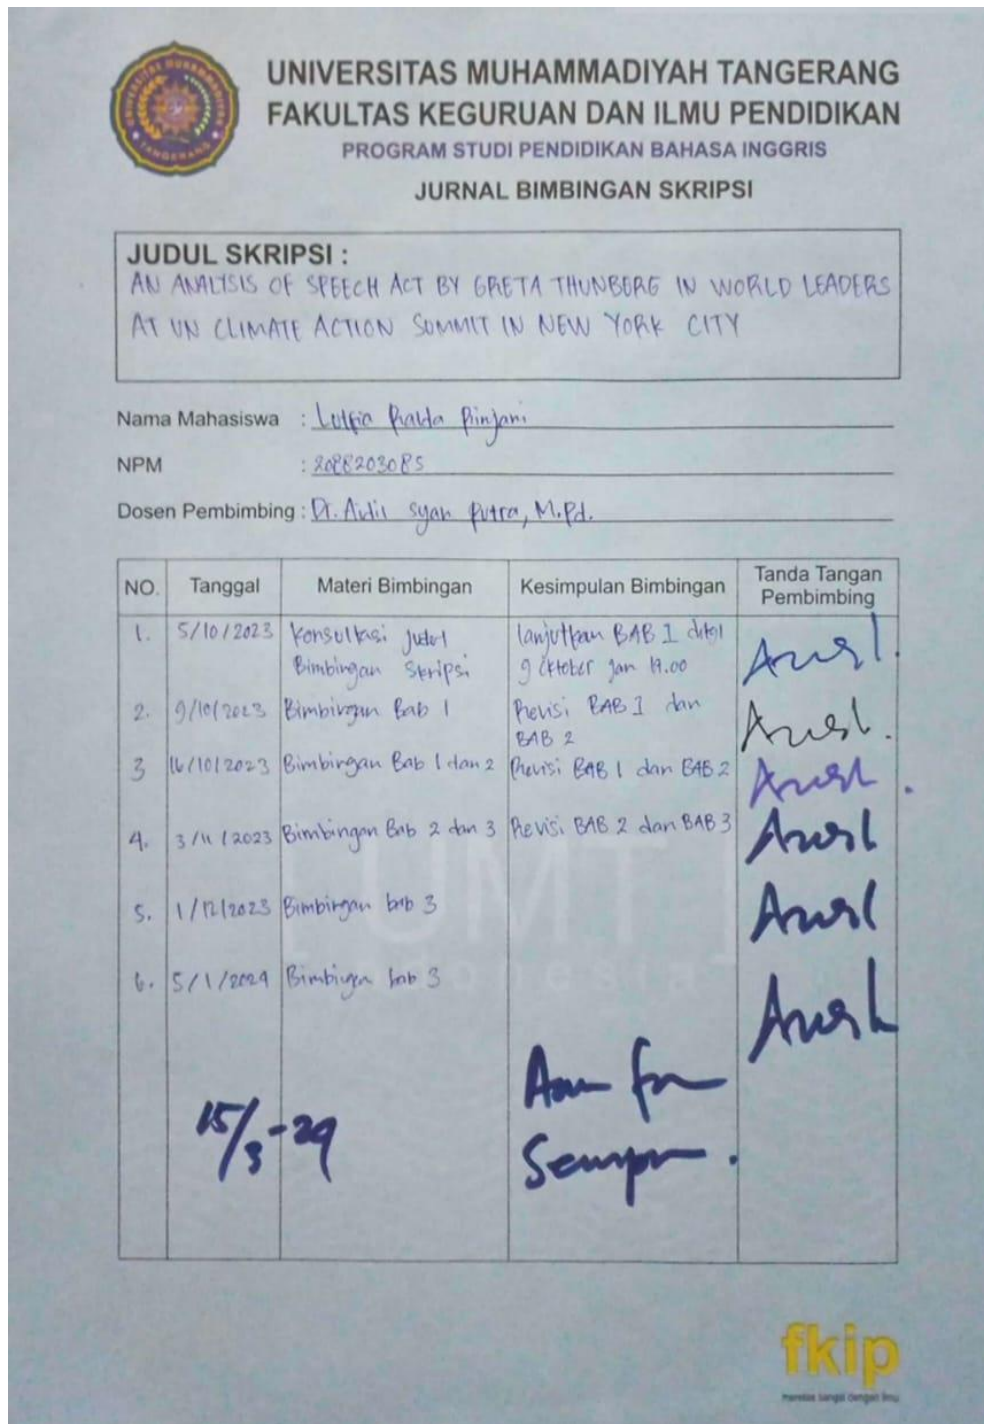 UNIVERSITAS MUHAMMADIYAH TANGERANG
FAKULTAS KEGURUAN DAN ILMU PENDIDIKAN
PROGRAM STUDI PENDIDIKAN BAHASA INGGRIS
JURNAL BIMBINGAN SKRIPSI
UNIVERSITAS MUHAMMADIYAH
TANGERANG
JUDUL SKRIPSI :
AN ANALYSIS OF SPEECH ACT BY GRETA THUNBERG IN WORLD LEADERS
AT UN CLIMATE ACTION SUMMIT IN NEW YORK CITY
Nama Mahasiswa : Lutfia Rinjani
NPM : 2088203085
Dosen Pembimbing : Dr. Audi Syah Putra, M.Pd.
NO. Tanggal Materi Bimbingan Kesimpulan Bimbingan Tanda Tangan Pembimbing
1. 5/10/2023 Konsultasi judul lanjutkan BAB I
Bimbingan Skripsi 9 Oktober jam 19.00
2. 9/10/2023 Bimbingan Bab 1 Revisi BAB I dan
BAB 2
3 16/10/2023 Bimbingan Bab 1 dan 2 Revisi BAB 1 dan BAB 2
4. 3/11/2023 Bimbingan Bab 2 dan 3 Revisi BAB 2 dan BAB 3
5. 1/12/2023 Bimbingan bab 3
6. 5/1/2024 Bimbingan bab 3
15/3-24
UMT
Indonesia
fkip